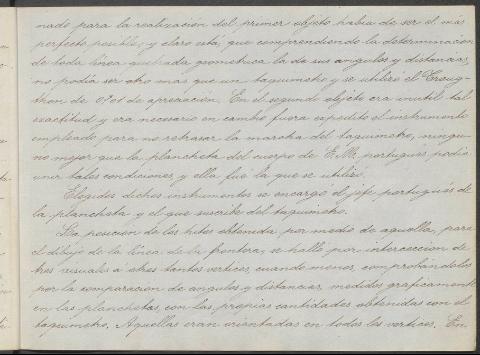 nado para la realización del primer objeto había de ser el más
perfecto posible, y claro está, que comprendiendo la determinacion
de toda línea quebrada geometrica la de sus angulos y distancias,
no podía ser otro mas que un taquimetro y se utilizó el Troug-
thon de 0,01 de apreciación. En el segundo objeto era inutil tal
exactitud y era necesario en cambio fuera expedito el instrumento
empleado, para no retrasar la marcha del taquimetro, ningu-
no mejor que la plancheta del cuerpo de E. M. portugués podia
unir tales condiciones, y ella fue la que se utilizó.
Elegidos dichos instrumentos se encargó el jefe portugués de
la plancheta y el que suscribe del taquimetro.
La posicion de los hitos obtenida por medio de aquella, para
el dibujo de la linea de la frontera, se halló por interseccion de
tres visuales a otros tantos vertices, cuando menos, comprobandolos
por la comparacion de angulos y distancias, medidos graficamente
en las planchetas, con las propias cantidades obtenidas con el
taquimetro. Aquellas eran orientadas en todos los vertices. En